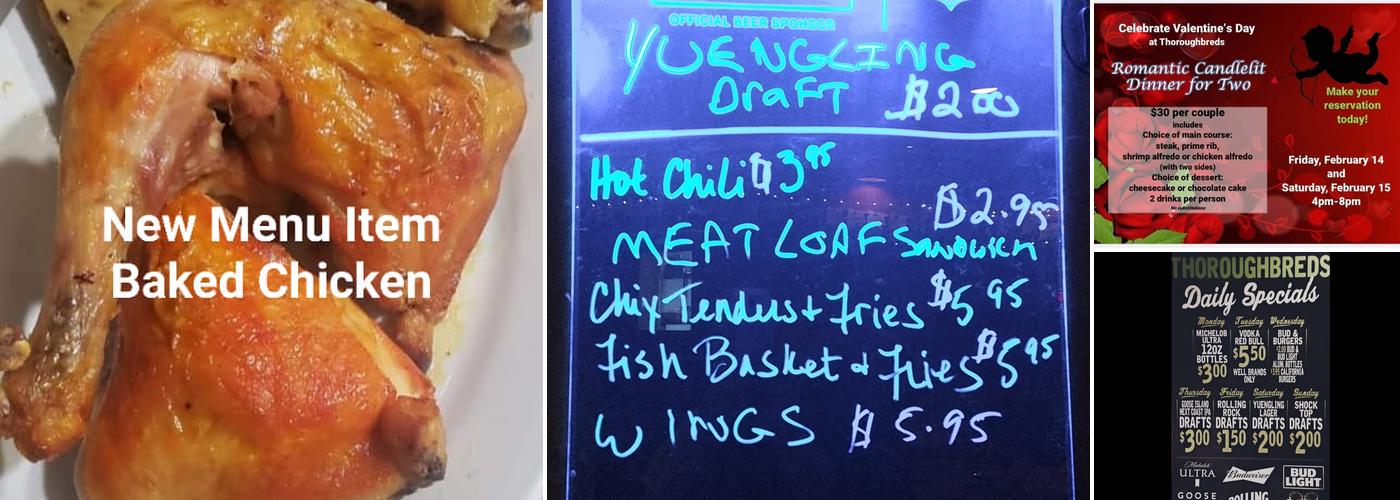 New Menu Item
Baked Chicken
OFFICIAL BEER SPONSOR
YUENGLING
Draft $2 00
Hot Chili $3 95
$2.95
MEAT LOAF SANDWICH
Chix Tenders + Fries $5 95
Fish Basket & Fries $5 95
WINGS $5.95
Celebrate Valentine's Day
at Thoroughbreds
Romantic Candlelit
Dinner for Two
$30 per couple
includes
Choice of main course:
steak, prime rib,
shrimp alfredo or chicken alfredo
(with two sides)
Choice of dessert:
cheesecake or chocolate cake
2 drinks per person
No substitutions
Make your
reservation
today!
Friday, February 14
and
Saturday, February 15
4pm-8pm
THOROUGHBREDS
Daily Specials
Monday
MICHELOB
ULTRA
12OZ
BOTTLES
$3 00
Tuesday
VODKA
RED BULL
$5 50
WELL BRANDS
ONLY
Wednesday
BUD &
BURGERS
$2.00 BUD &
BUD LIGHT
ALUM. BOTTLES
$5.95 CALIFORNIA
BURGERS
Thursday
GOOSE ISLAND
NEXT COAST IPA
DRAFTS
$3 00
Friday
ROLLING
ROCK
DRAFTS
$1 50
Saturday
YUENGLING
LAGER
DRAFTS
$2 00
Sunday
SHOCK
TOP
DRAFTS
$2 00
Michelob
ULTRA
Budweiser
BUD
LIGHT
GOOSE
ROLLING